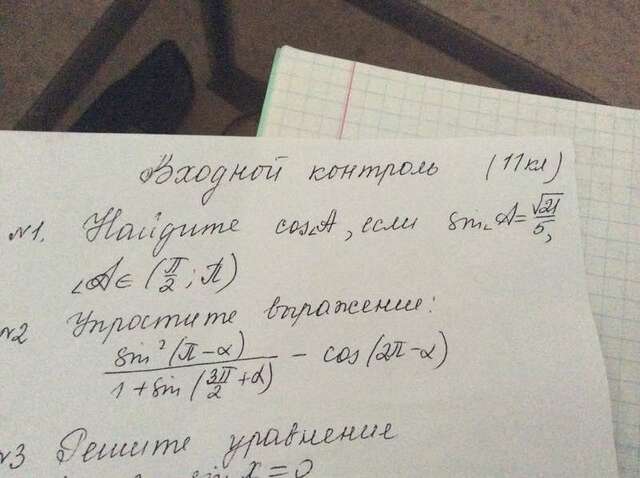 Входной контроль (11кл)
№1. Найдите cos∠A, если sin∠A = √21/5,
∠A ∈ (π/2; π)
№2 Упростите выражение:
sin²(π-α)/(1+sin(3π/2+α)) - cos(2π-α)
№3 Решите уравнение
sin x = 0